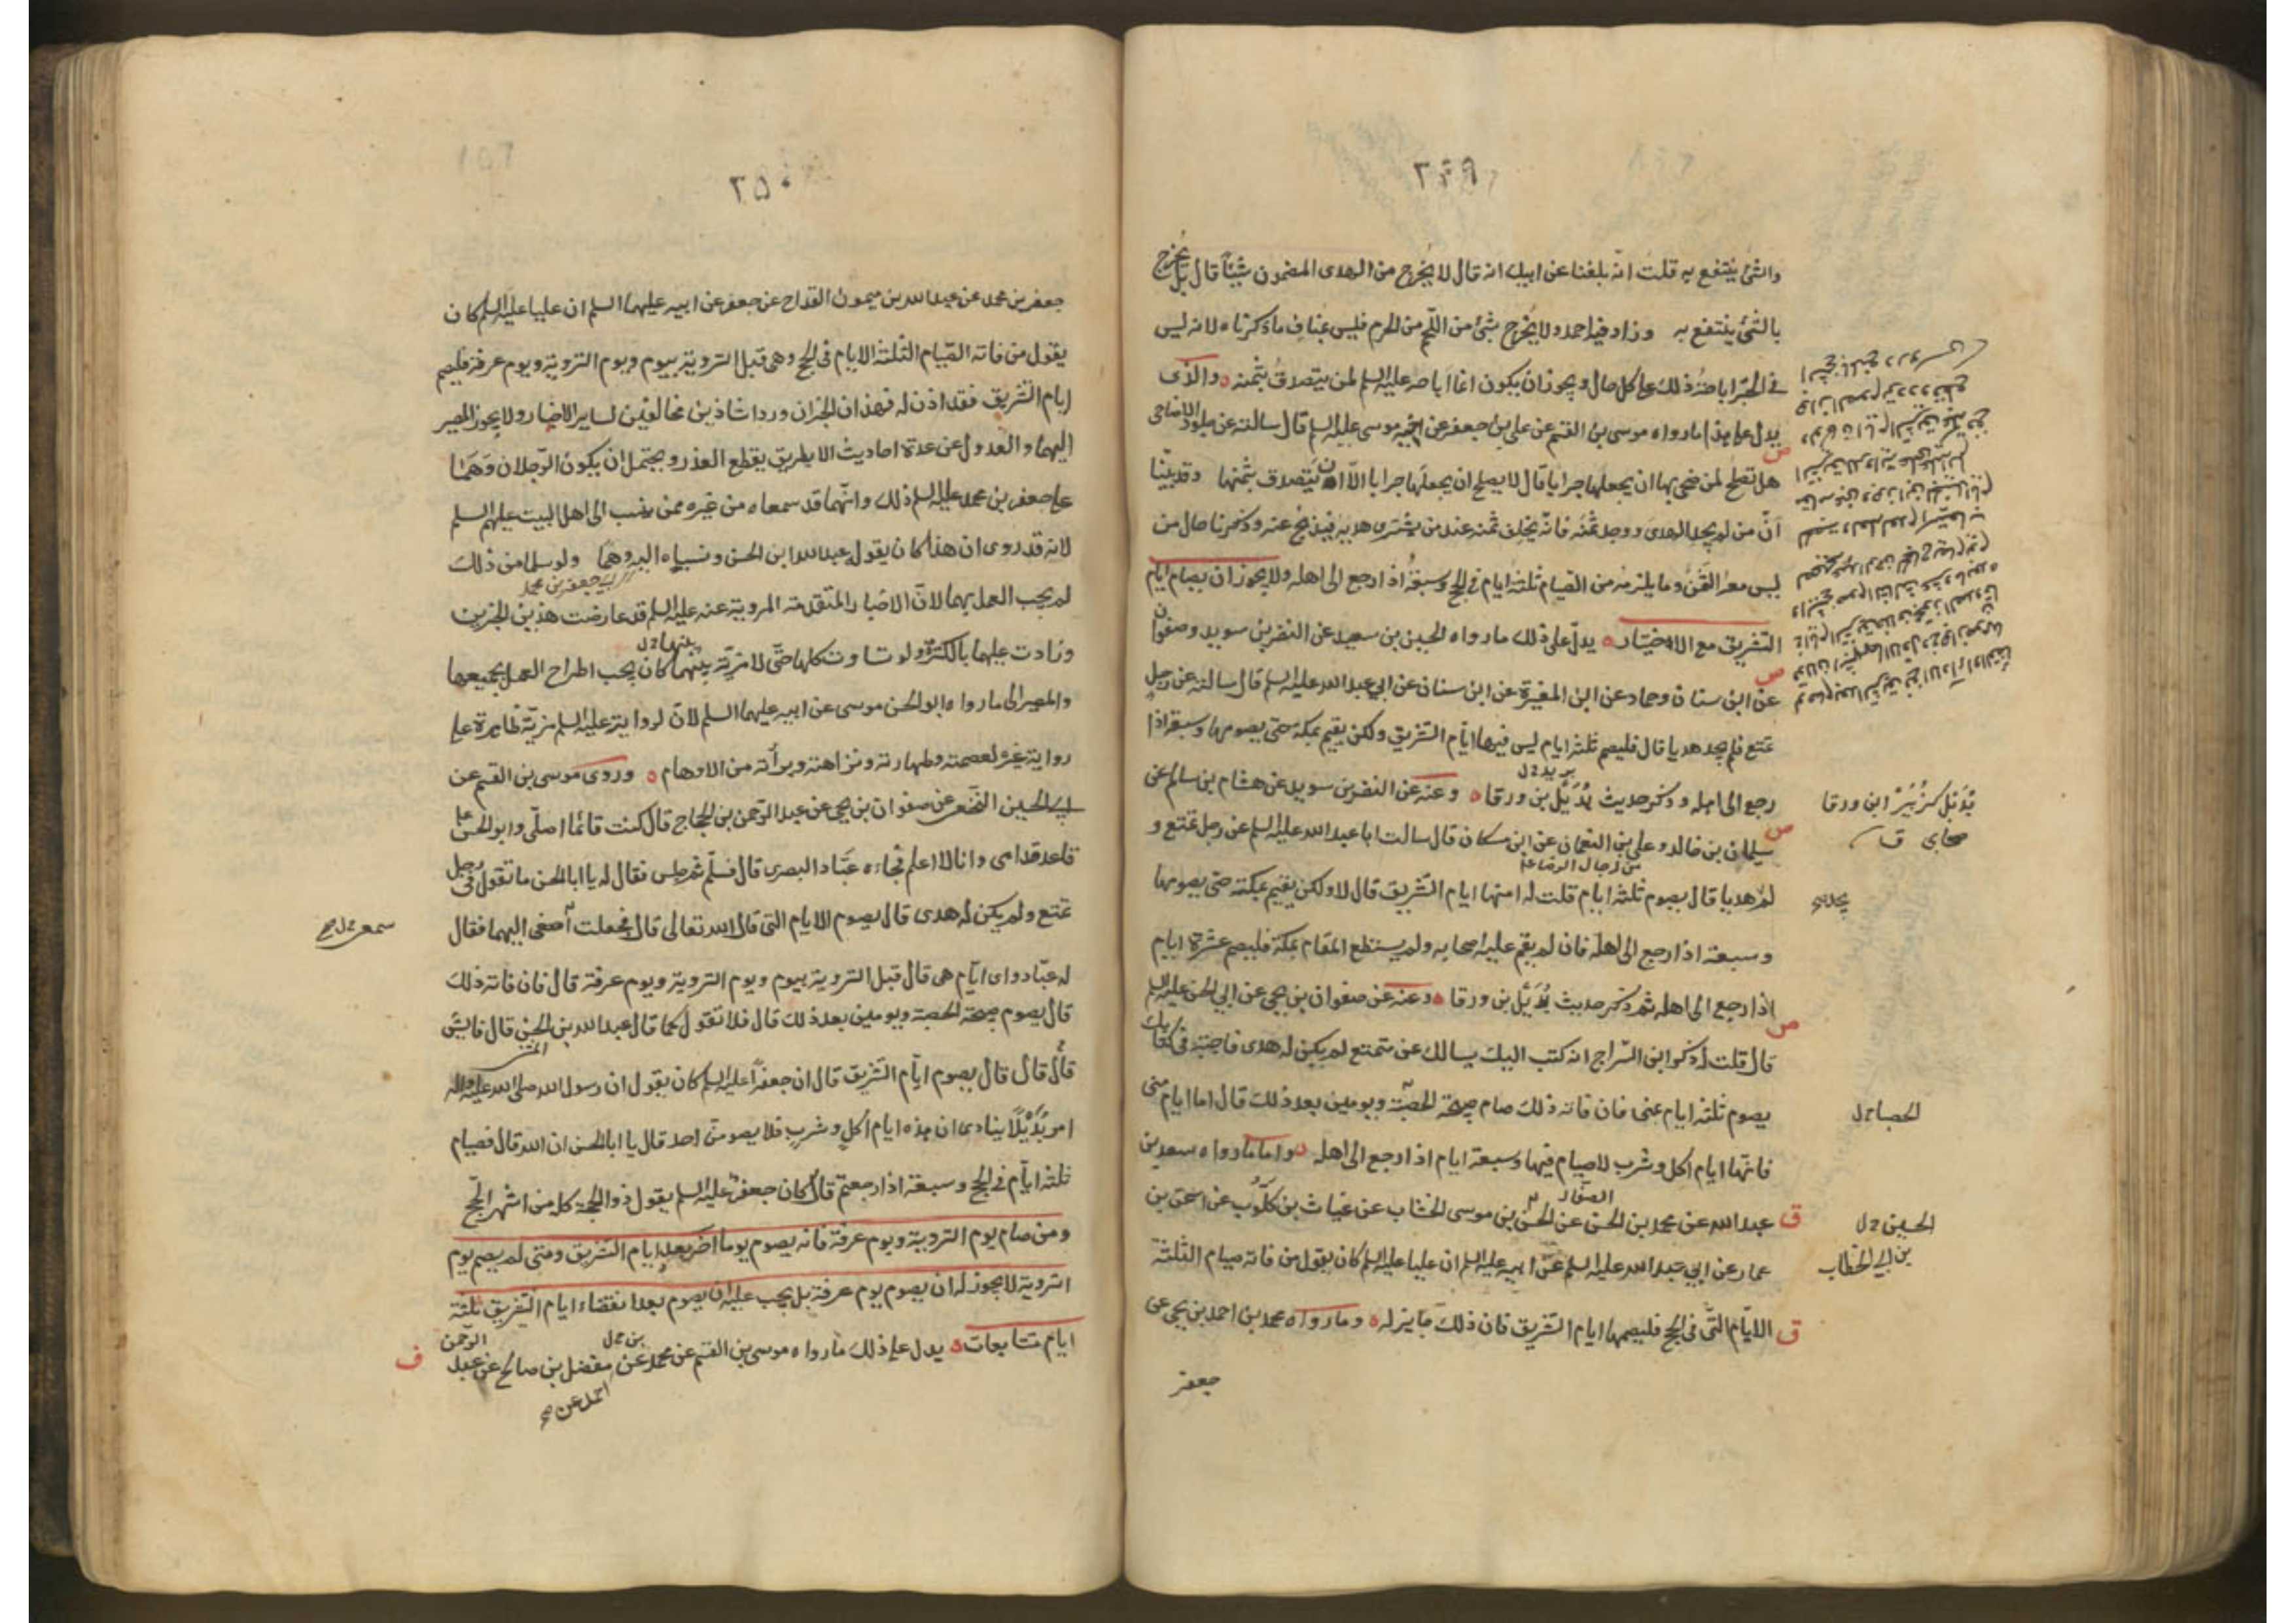 ٢٤٩
والشئ ينتفع به قلت انّه بلغنا عن ابيك انه قال لا يخرج من الهدى المضمون شيئاً قال بل يُخرج
بالشئ ينتفع به وزاد فيه احمد ولا يُخرج بشئ من اللّحم من الحرم فليس بمناف ما ذكرناه لانه ليس
فى الخبر اباحة ذلك على كل حال ويجوز ان يكون انما اباحه عليه السلم لمن يتصدق بثمنه والذى
يدل على هذا ما رواه موسى بن القسم عن على بن جعفر عن اخيه موسى عليه السلم قال سالته عن جلود الاضاحى
هل تصلح لمن ضحى بها ان يجعلها جرابا قال لا يصلح ان يجعلها جرابا الّا ان يتصدق بثمنها وقد بيّنا
انّ من لم يجد الهدى ووجد ثمنه فانّه يخلف ثمنه عند من يشترى هديه فيذبح عنه وذكرنا حال من
ليس معه الثمن وما يلزمه من الصيام ثلثة ايام فى الحج وسبعة اذا رجع الى اهله ولا يجوز ان يصام ايام
التشريق مع الاختيار يدلّ على ذلك ما رواه الحسين بن سعيد عن النضر بن سويد وصفوان
عن ابن سنان وحماد عن ابن المغيرة عن ابن سنان عن ابى عبد الله عليه السلم قال سالته عن رجل
تمتع فلم يجد هديا قال فليصم ثلثة ايام ليس فيها ايّام التشريق ولكن يقيم بمكة حتى يصومها وسبعة اذا
بريد خ ل
رجع الى اهله وذكر حديث بُدَيْل بن ورقا وعنه عن النضر بن سويد عن هشام بن سالم عن
سليمان بن خالد وعلى بن النعمان عن ابن مسكان قال سالت ابا عبد الله عليه السلم عن رجل تمتع و
لم هديا قال يصوم ثلثة ايام قلت له امنها ايام التشريق قال لا ولكن يقيم بمكة حتى يصومها
وسبعة اذا رجع الى اهله فان لم يقم عليه اصحابه ولم يستطع المقام بمكة فليصم عشرة ايام
اذا رجع الى اهله ثم ذكر حديث بُدَيْل بن ورقا وعنه عن صفوان بن يحيى عن ابى الحسن عليه السلم
قال قلت له ذكر ابن السّراج انه كتب اليك يسالك عن متمتع لم يكن له هدى فاجبته فى كتابك
يصوم ثلثة ايام بمنى فان فاته ذلك صام صبيحة الحصبة ويومين بعد ذلك قال اما ايام منى
فانها ايام اكل وشرب لا صيام فيها وسبعة ايام اذا رجع الى اهله واما ما رواه سعد بن
الصفار
عبد الله عن محمد بن الحسن عن الحسن بن موسى الخشاب عن غياث بن كلّوب عن اسحق بن
عمار عن ابى عبد الله عليه السلم عن ابيه عليه السلم ان عليا عليه السلم كان يقول من فاته صيام الثلثة
الايّام التى فى الحج فليصمها ايام التشريق فان ذلك جايز له وما رواه محمد بن احمد بن يحيى عن
جعفر
بُدَيْل كزُبَيْر ابن ورقا
صحابى ق
الحصبا خ ل
الحسين خ ل
بن ابى الخطاب
٢٥٠
جعفر بن محمد عن عبد الله بن ميمون القداح عن جعفر عن ابيه عليهما السلم ان عليا عليه السلم كان
يقول من فاته الصّيام الثلثة الايام فى الحج وهى قبل التروية بيوم ويوم التروية ويوم عرفة فليصم
ايام التشريق فقد اذن له فهذان الخبران وردا شاذين مخالفين لساير الاخبار ولا يجوز المصير
اليهما والعدول عن عدة احاديث الا بطريق يقطع العذر ويحتمل ان يكون الرّجلان وهما
على جعفر بن محمد عليه السلم ذلك وانّهما قد سمعاه من غيره ممن ينسب الى اهل البيت عليهم السلم
لانه قد روى ان هذا كان يقول عبد الله ابن الحسن ونسباه اليه وهما ولو سلما من ذلك
لم يجب العمل بهما لانّ الاخبار المتقدمة المروية عنه عليه السلم قد عارضت هذين الخبرين
بينها خ ل
وزادت عليهما بالكثرة ولو تساوت كلها حتّى لا مزيّة بينهما كان يجب اطراح العمل بجميعها
والمصير الى ما رواه ابو الحسن موسى عن ابيه عليهما السلم لانّ لروايته عليه السلم مزيّة ظاهرة على
رواية غيره لعصمته وطهارته ونزاهته وبرأته من الاوهام وروى موسى بن القسم عن
ابى الحسين النخعى عن صفوان بن يحيى عن عبد الرّحمن بن الحجاج قال كنت قائما اصلّى وابو الحسن
قاعد قدامى وانا لا اعلم فجاءه عبّاد البصرى قال فسلّم ثم جلس فقال له يا ابا الحسن ما تقول فى رجل
تمتع ولم يكن له هدى قال يصوم الايام التى قال الله تعالى قال فجعلت اصغى اليهما فقال
له عبّاد واى ايّام هى قال قبل التروية بيوم ويوم التروية ويوم عرفة قال فان فاته ذلك
قال يصوم صبيحة الحصبة ويومين بعد ذلك قال فلا تقول كما قال عبد الله بن الحسن قال فايش
قال قال قال يصوم ايّام التشريق قال ان جعفراً عليه السلم كان يقول ان رسول الله صلى الله عليه وآله
امر بُدَيْلًا ينادى ان هذه ايام اكل وشرب فلا يصومن احد قال يا ابا الحسن ان الله قال فصيام
ثلثة ايّام فى الحج وسبعة اذا رجعتم قال كان جعفر عليه السلم يقول ذو الحجة كله من اشهر الحجّ
ومن صام يوم التروية ويوم عرفة فانه يصوم يوما اخر بعد ايام التشريق ومتى لم يصم يوم
التروية لا يجوز له ان يصوم يوم عرفة بل يجب عليه ان يصوم بعد انقضاء ايام التشريق ثلثة
ايام متتابعات يدل على ذلك ما رواه موسى بن القسم عن محمد عن مفضل بن صالح عن عبد
الرّحمن
احمد عن صح